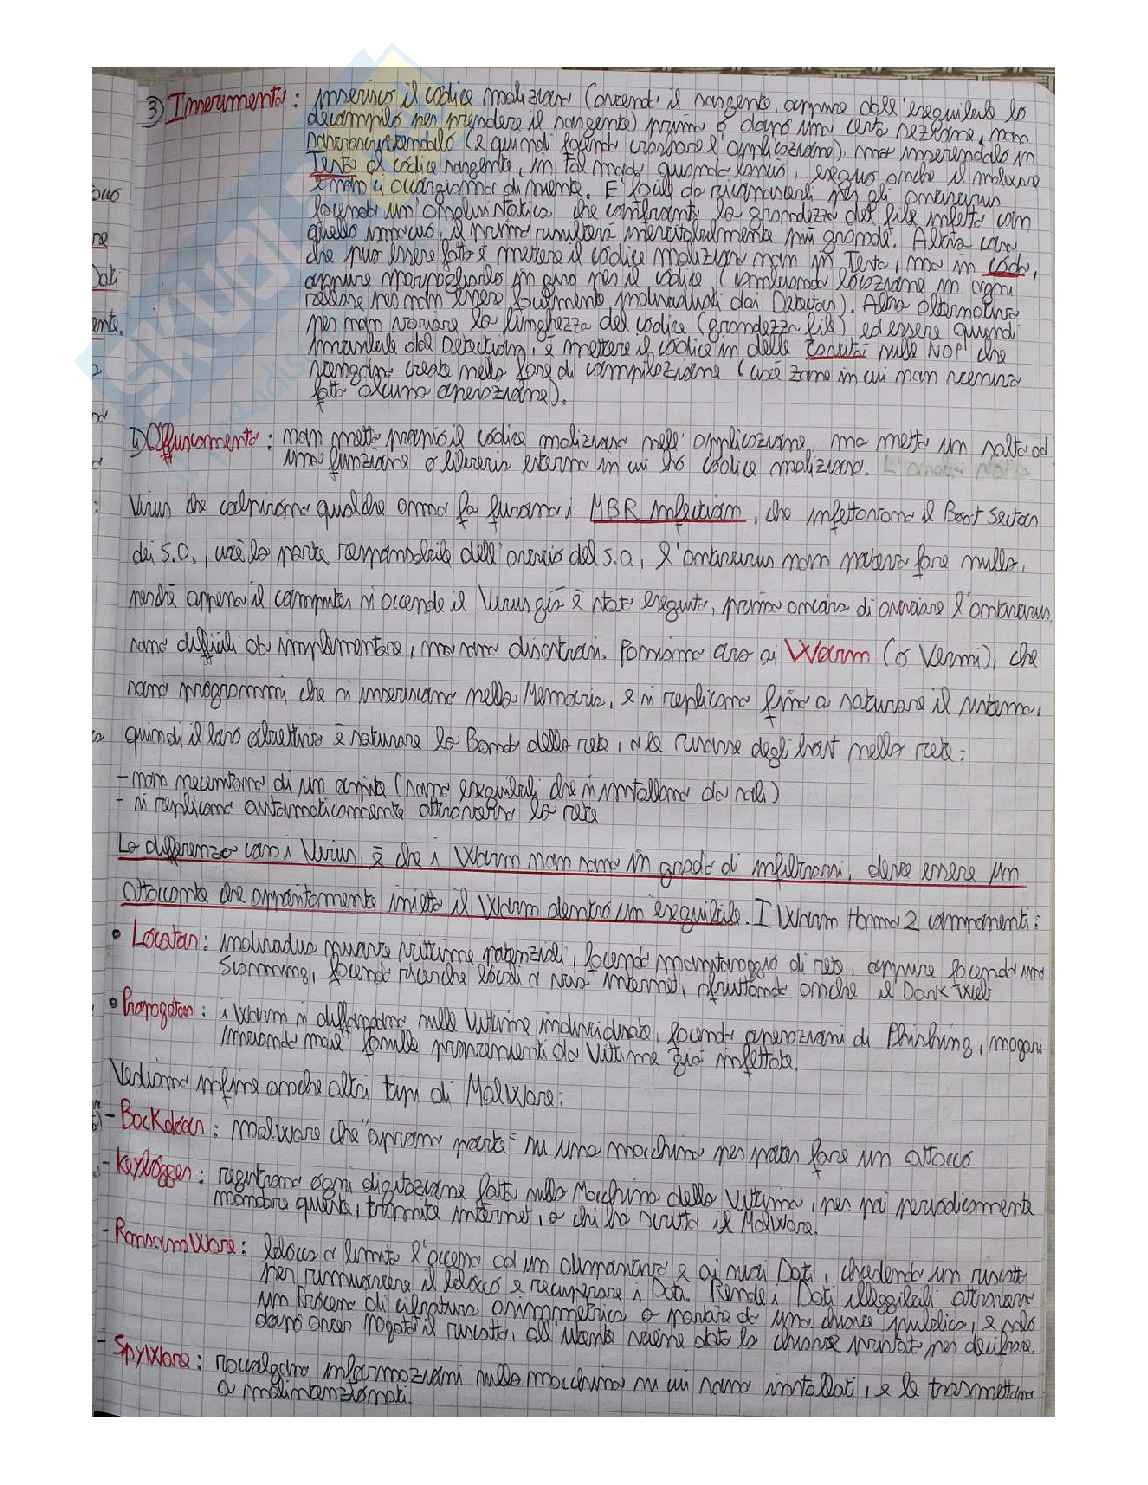 3) Inserimento: inserisco il codice malizioso (avendo il sorgente oppure dall'eseguibile lo
decompilo per prendere il sorgente) prima o dopo una certa sezione, non
sovrascrivendolo (e quindi facendo crashare l'applicazione), ma inserendolo in
Testa al codice sorgente, in tal modo quando lancio, eseguo anche il malware
e non ci accorgiamo di niente. E' facile da riconoscersi per gli antivirus
facendo un'analisi statica che confronta la grandezza del file infetto con
quello innocuo, il primo risulterà inevitabilmente più grande. Altra cosa
che può essere fatta è mettere il codice malizioso non in Testa, ma in coda,
oppure sparpagliarlo in giro per il codice (cambiando locazione in ogni
per non essere facilmente individuati dai Detector). Altra alternativa
per non variare la lunghezza del codice (grandezza file) ed essere quindi
dal Detection, è mettere il codice in delle Cavità nulle NOP che
vengono create nella fase di compilazione (cioè zone in cui non viene
fatta alcuna operazione).
Offuscamento: non metto proprio il codice malizioso nell'applicazione, ma metto un salto ad
una funzione o libreria esterna in cui ho codice malizioso.
Virus che colpirono qualche anno fa furono i MBR Infection, che infettavano il Boot Sector
dei S.O., cioè la parte responsabile dell'avvio del S.O., l'antivirus non poteva fare nulla,
perché appena il computer si accende il Virus già è stato eseguito, prima ancora di avviare l'antivirus,
sono difficili da implementare, ma sono disastrosi. Passiamo ora ai Worm (o Vermi), che
sono programmi che si inseriscono nella Memoria, e si replicano fino a saturare il sistema,
quindi il loro obiettivo è saturare la Banda della rete, o le risorse degli host nella rete:
- non necessitano di un ospite (sono eseguibili che si installano da soli)
- si replicano automaticamente attraverso la rete
La differenza con i Virus è che i Worm non sono in grado di infiltrarsi, deve essere un
attaccante che appositamente inietta il Worm dentro un eseguibile. I Worm hanno 2 componenti:
• Locator: individua nuove vittime potenziali, facendo monitoraggio di rete oppure facendo uno
Scanning, facendo ricerche locali o via Internet, sfruttando anche il Dark Web
• Propagator: i Worm si diffondono sulle Vittime individuate, facendo operazioni di Phishing, magari
inviando mail fasulle provenienti da Vittime già infettate.
Vediamo infine anche altri tipi di MalWare:
- Backdoor: malware che "aprono porte" su una macchina per poter fare un attacco
- Keylogger: registrano ogni digitazione fatta sulla Macchina della Vittima, per poi periodicamente
mandare queste, tramite internet, a chi ha scritto il MalWare.
- RansomWare: blocca o limita l'accesso ad un dispositivo e ai suoi Dati, chiedendo un riscatto
per rimuovere il blocco e recuperare i Dati. Rende i Dati illeggibili attraverso
un Processo di cifratura asimmetrica a partire da una chiave pubblica, e solo
dopo aver pagato il riscatto, all'utente viene data la chiave privata per decifrare.
- SpyWare: raccolgono informazioni sulla macchina su cui sono installati, e le trasmettono
a malintenzionati.